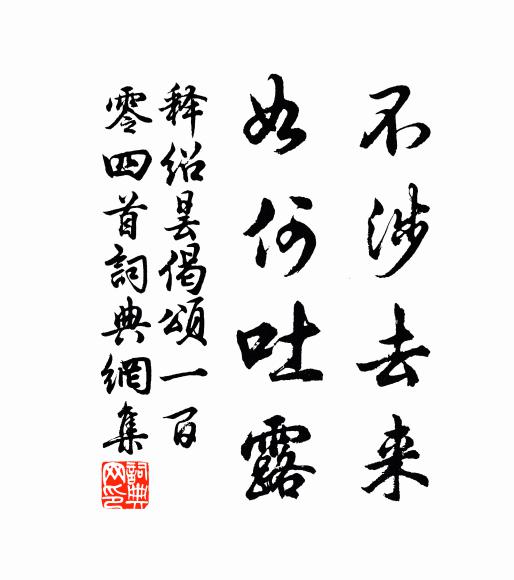 不涉去来
如何吐露
释绍昙偈颂一百
零四首詞典網集
詞典网印